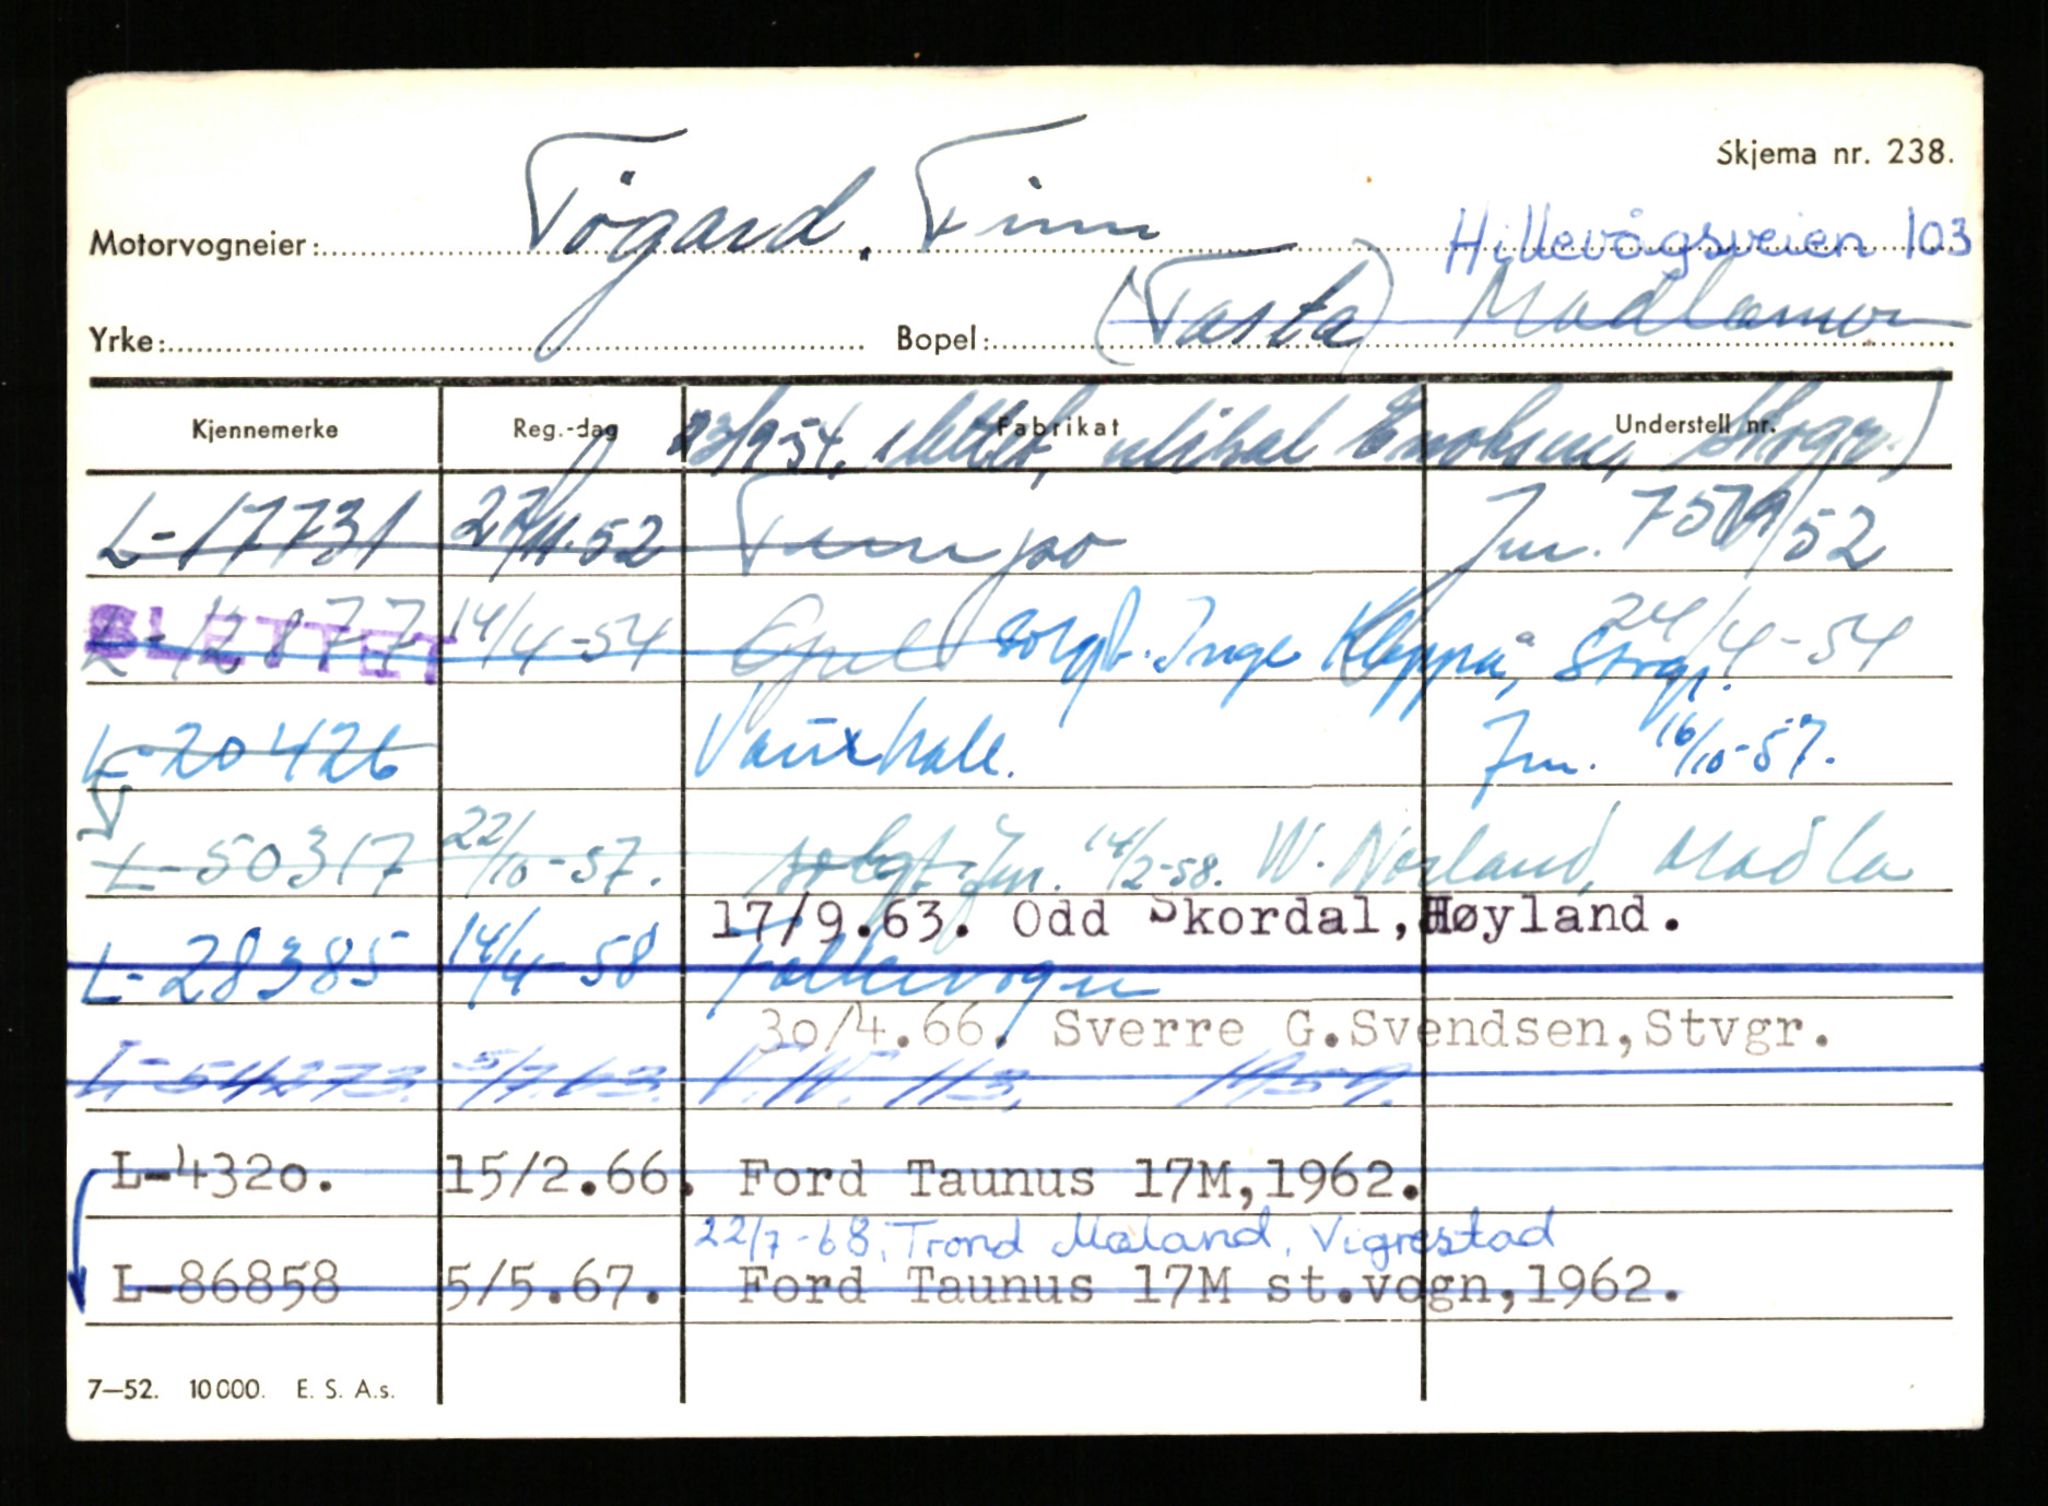 Skjema nr. 238.
Motorvogneier: Tögard. Finn Hillevågsveien 103
Yrke: Bopel: (Tasta) Madlamor
Kjennemerke Reg.-dag Fabrikat Understell nr.
23/9 54, slettet, Stvgr.)
L-17731 27/11.52 Tempo Jnr. 7579/52
SLETTET
L-12877 14/4-54 Opel solgt. Inge Kleppa, Stvgr. 24/4-54
L-20426 Vauxhall. Jnr. 16/10-57.
L-50317 22/10-57. solgt. Jnr. 14/2-58. W. Norland, Madla
17/9.63. Odd Skordal, Høyland.
L-28385 14/4-58 Folkevogn
30/4.66. Sverre G.Svendsen,Stvgr.
L-54273. 5/7.63. V.W. 113, 1959.
L-4320. 15/2.66. Ford Taunus 17M,1962.
22/7-68, Trond Mæland, Vigrestad
L-86858 5/5.67. Ford Taunus 17M st.vogn,1962.
7—52. 10000. E. S. A.s.